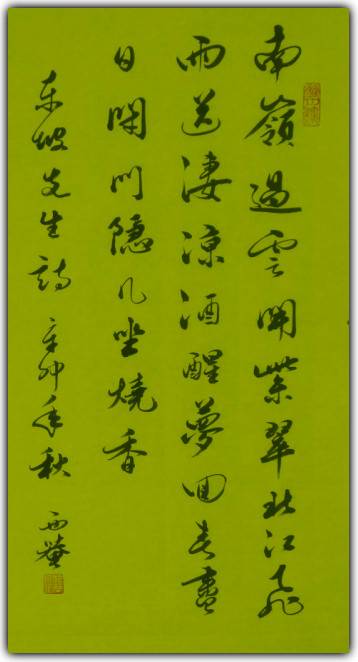 南嶺過雲開紫翠北江飛
雨送淒涼酒醒夢回春盡
日閉門隱几坐燒香
東坡先生詩 辛卯年秋 西菴